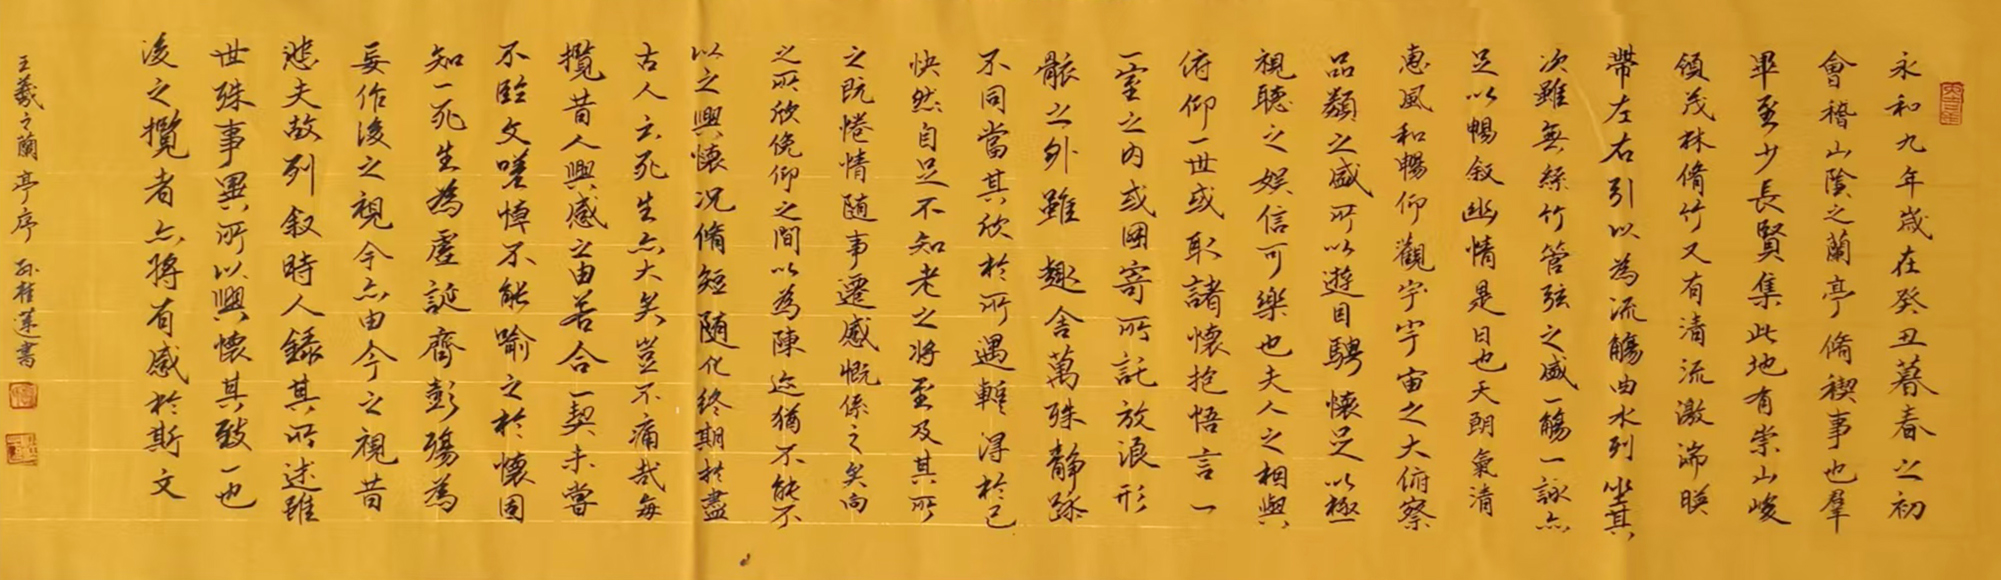 永和九年歲在癸丑暮春之初
會稽山陰之蘭亭脩禊事也羣
畢至少長賢集此地有崇山峻
領茂林脩竹又有清流激湍暎
帶左右引以為流觴曲水列坐其
次雖無絲竹管弦之盛一觴一詠亦
足以暢叙幽情是日也天朗氣清
惠風和暢仰觀宇宇宙之大俯察
品類之盛所以遊目騁懷足以極
視聽之娛信可樂也夫人之相與
俯仰一世或取諸懷抱悟言一
一室之內或因寄所託放浪形
骸之外雖趣舍萬殊靜躁
不同當其欣於所遇暫得於己
快然自足不知老之将至及其所
之既惓情随事遷感慨係之矣向
之所欣俛仰之間以為陳迹猶不能不
以之興懷况脩短随化終期於盡
古人云死生亦大矣豈不痛哉每
攬昔人興感之由若合一契未嘗
不臨文嗟悼不能喻之於懷固
知一死生為虛誕齊彭殤為
妄作後之視今亦由今之視昔
悲夫故列叙時人錄其所述雖
世殊事異所以興懷其致一也
後之攬者亦將有感於斯文
王羲之蘭亭序 孙桂莲書